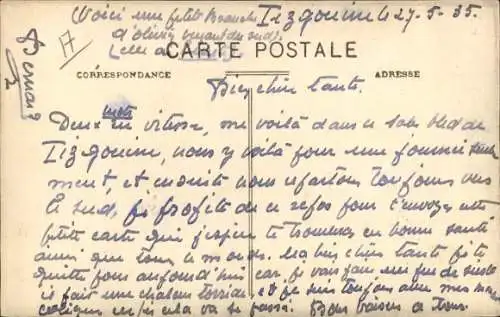 Voici une petite Branche Izgouine le 27-5-35
d'olivier venant du sud.
CARTE POSTALE
CORRESPONDANCE
ADRESSE
Bien chère tante.
Deux mots en vitesse, me voilà dans ce sale bled de
nous y voilà pour une journée seule
ment, et ensuite nous repartons toujours vers
le sud, je profite de ce repos pour t'envoyer cette
petite carte qui j'espère te trouvera en bonne santé
ainsi que tout le monde. Ma bien chère tante je te
quitte pour aujourd'hui car je vais faire une peu de sieste
il fait une chaleur torride, et je suis toujours avec mes
coliques cela va se passé. Bons baisers a tous.